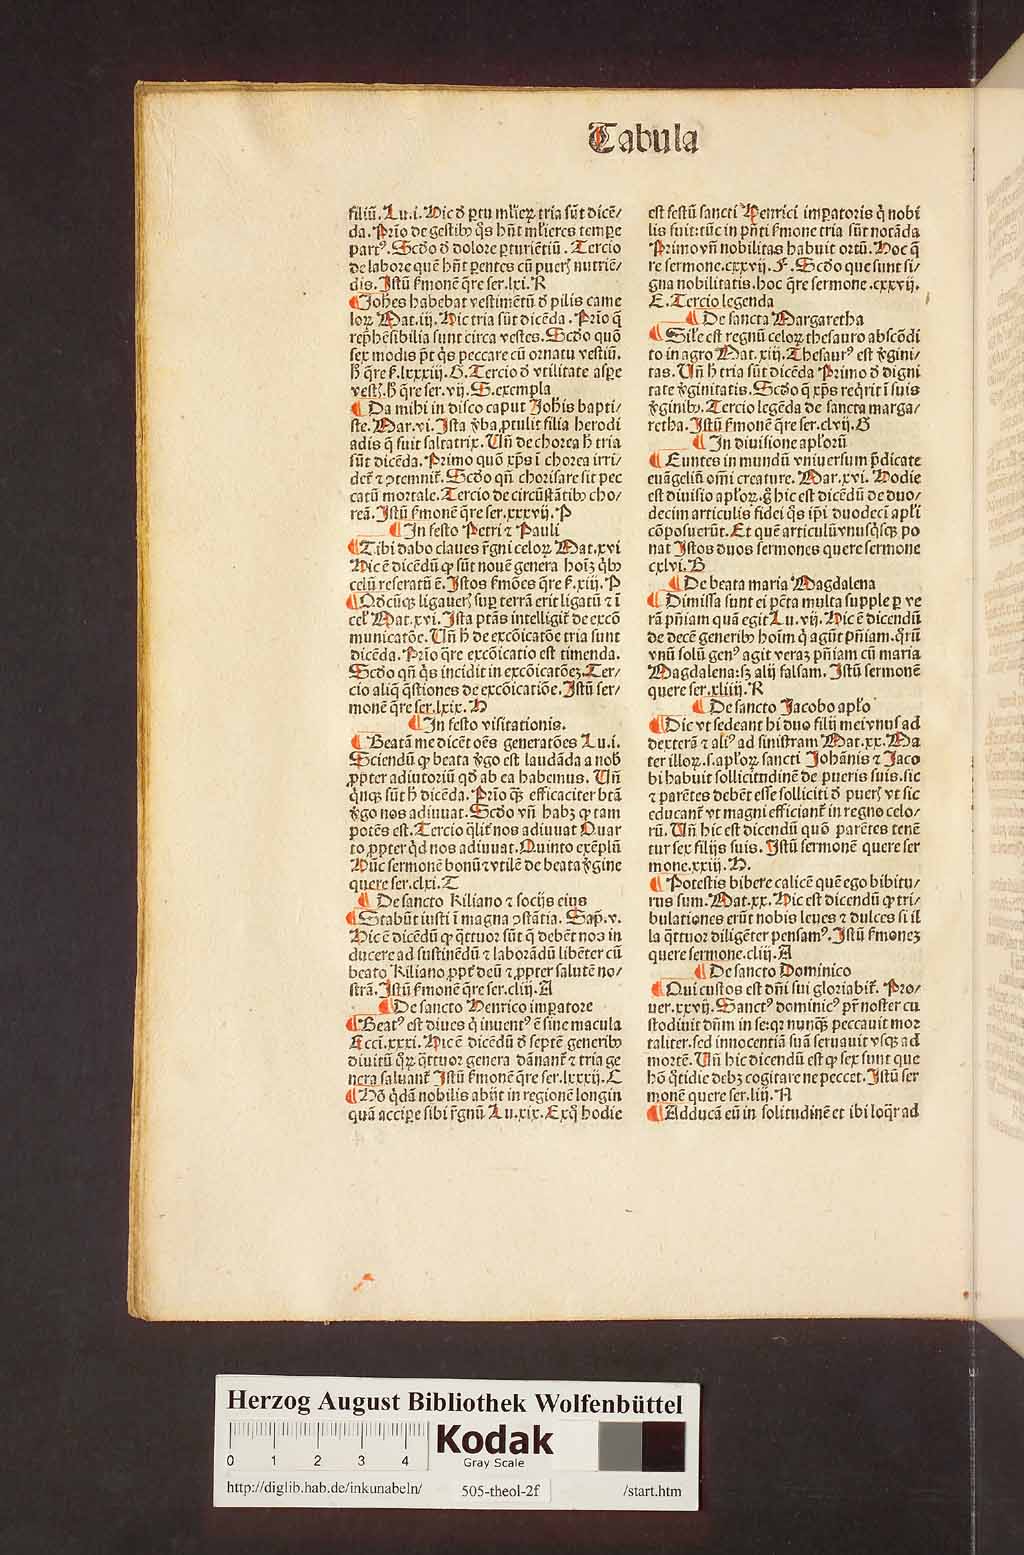 Tabula
filiū. Lu.i. Hic ð ꝑtu mlierꝝ tria sūt dicē/
da. Prīo de gestibꝰ q̄s hn̄t mlieres tempe
partꝰ. Scd̄o ð dolore ꝑturiētiū. Tercio
de labore quē hn̄t ꝑentes cū pueris nutriē/
dis. Istū ẜmonē q̄re ser.lxi. R
¶ Johes habebat vestimētū ð pilis came
lorꝝ Mat.iij. Hic tria sūt dicēda. Prīo q̄
rep̄hēsibilia sunt circa vestes. Scd̄o quō
sex modis p̄t q̄s peccare cū ornatu vestiū.
h̄ q̄re ẜ.lxxxij. G. Tercio ð vtilitate aspe
vestis. h̄ q̄re ser.vij. S. exempla
¶ Da mihi in disco caput Johis bapti/
ste. Mar.vi. Ista v̄ba ꝓtulit filia herodi
adis q̄ fuit saltatrix. Un̄ de chorea h̄ tria
sūt dicēda. Primo quō xp̄s ī chorea irri/
det᷑ ⁊ ꝯtemnit᷑. Scd̄o qn̄ chorisare sit pec
catū mortale. Tercio de circūstātibꝰ cho/
reā. Istū ẜmonē q̄re ser.xxxvij. P
¶ In festo Petri ⁊ Pauli
¶ Tibi dabo claues r̄gni celorꝝ Mat.xvi
Hic ē dicēdū ꝙ sūt nouē genera hoīꝫ q̄bꝰ
celū reseratū ē. Istos ẜmōes q̄re ẜ.xiij. P
¶ Qd̄cūqꝫ ligaueris suꝑ terrā erit ligatū ⁊ ī
cel Mat.xvi. Ista ptās intelligit᷑ de excō
municatōe. Un̄ h̄ de excōicatōe tria sunt
dicēda. Prīo q̄re excōicatio est timenda.
Scd̄o qn̄ q̄s incidit in excōicatōeꝫ. Ter/
cio aliq̄ q̄stiones de excōicatiōe. Istū ser/
monē q̄re ser.lxix. H
¶ In festo visitationis.
¶ Beatā me dicēt oēs generatōes Lu.i.
Sciendū ꝙ beata v̄go est laudāda a nob
ꝓpter adiutoriū qd̄ ab ea habemus. Un̄
q̄nqꝫ sūt h̄ dicēda. Prīo q̄ꝫ efficaciter btā
v̄go nos adiuuat. Scd̄o vn̄ habꝫ ꝙ tam
potēs est. Tercio q̄lit᷑ nos adiuuat Quar
to ꝓpter q̄d nos adiuuat. Quinto exēplū
Hūc sermonē bonū ⁊ vtilē de beata v̄gine
quere ser.clxi. T
¶ De sancto Kiliano ⁊ socijs eius
¶ Stabūt iusti ī magna ꝯstātia. Sap̄.v.
Hic ē dicēdū ꝙ q̄ttuor sūt q̄ debēt nos in
ducere ad sustinēdū ⁊ laborādū libēter cū
beato Kiliano ꝓpt᷑ deū ⁊ ꝓpter salutē no/
strā. Istū ẜmonē q̄re ser.cliij. A
¶ De sancto Henrico imꝑatore
¶ Beatꝰ est diues q̄ inuentꝰ ē sine macula
Ecci.xxxi. Hic ē dicēdū ð septē generibꝰ
diuitū q̄rꝝ q̄ttuor genera dānant᷑ ⁊ tria ge
nera saluant᷑ Istū ẜmonē q̄re ser.lxxxij. C
¶ Hō q̄dā nobilis abijt in regionē longin
quā accipe sibi r̄gnū. Lu.xix. Exq̄ hodie
est festū sancti Henrici imꝑatoris q̄ nobi
lis fuit: tūc in p̄n̄ti ẜmone tria sūt notāda
Primo vn̄ nobilitas habuit ortū. Hoc q̄
re sermone.cxxvij. F. Scd̄o que sunt si/
gna nobilitatis. hoc q̄re sermone.cxxvij.
E. Tercio legenda
¶ De sancta Margaretha
¶ Sile est regnū celorꝝ thesauro abscōdi
to in agro Mat.xiij. Thesaurꝰ est v̄gini/
tas. Un̄ h̄ tria sūt dicēda Primo ð digni
tate v̄ginitatis. Scd̄o q̄ xp̄s req̄rit ī suis
v̄ginibꝰ. Tercio legēda de sancta marga/
retha. Istū ẜmonē q̄re ser.clvij. G
¶ In diuisione aplorū
¶ Euntes in mundū vniuersum p̄dicate
euāgeliū om̄i creature. Mar.xvi. Hodie
est diuisio aplorꝝ. g̊ hic est dicēdū de duo/
decim articulis fidei q̄s ip̄i duodecī apli
cōposuerūt. Et quē articulū vnusq̄sqꝫ po
nat Istos duos sermones quere sermone
cxlvi. B
¶ De beata maria Magdalena
¶ Dimissa sunt ei pctā multa supple ꝑ ve
rā pn̄iam quā egit Lu.vij. Hic ē dicendū
de decē generibꝰ hoīm q̄ agūt pn̄iam. q̄rū
vnū solū genꝰ agit veraꝫ pn̄iam cū maria
Magdalena: sꝫ alij falsam. Istū sermonē
quere ser.xliiij. R
¶ De sancto Jacobo aplo
¶ Dic vt sedeant hi duo filij mei vnus ad
dexterā ⁊ aliꝰ ad sinistram Mat.xx. Ma
ter illorꝝ.s.aplorꝝ sancti Johānis ⁊ Jaco
bi habuit sollicitudinē de pueris suis. sic
⁊ parētes debēt esse solliciti ð pueris vt sic
educant᷑ vt magni efficiant᷑ in regno celo/
rū. Un̄ hic est dicendū quō parētes tenē
tur sex filijs suis. Istū sermonē quere ser
mone.xxiij. H.
¶ Potestis bibere calicē quē ego bibitu/
rus sum. Mat.xx. Hic est dicendū ꝙ tri/
bulationes erūt nobis leues ⁊ dulces si il
la q̄ttuor diligēter pensamꝰ. Istū ẜmoneꝫ
quere sermone.cliij. A
¶ De sancto Dominico
¶ Qui custos est dn̄i sui gloriabit᷑. Pro/
uer.xxvij. Sanctꝰ dominicꝰ pr̄ noster cu
stodiuit dn̄m in se: qꝛ nunqꝫ peccauit mor
taliter. sed innocentiā suā seruauit vsqꝫ ad
mortē. Un̄ hic dicendū est ꝙ sex sunt que
hō q̄tidie debꝫ cogitare ne peccet. Istū ser
monē quere ser.liij. N
¶ Adducā eū in solitudinē et ibi loq̄r ad
Herzog August Bibliothek Wolfenbüttel
0 1 2 3 4
Kodak
Gray Scale
http://diglib.hab.de/inkunabeln/ 505-theol-2f /start.htm